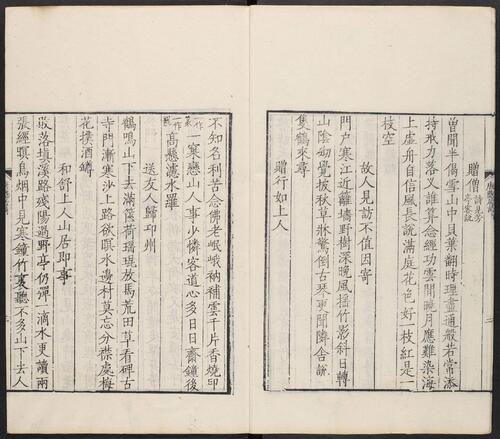 贈僧
曾聞半偈雪山中貝葉翻時理盡通般若常添
持戒力落叉誰算念經功雲間曉月應難染海
上虛舟自信風長說滿庭花色好一枝紅是一
枝空
故人見訪不值因寄
門戶寒江近籬墻野樹深晚風搖竹影斜日轉
山陰砌覺披秋草牀驚倒古琴更聞隣舍說
隻鶴來尋
贈行如上人
不知名利苦念佛老岷峨衲補雲千片香燒印
一窠戀山人事少憐客道心多日日齋鐘後
高懸濾水羅
送友人歸邛州
鶴鳴山下去滿篋荷瑶琨放馬荒田草看碑古
寺門漸寒沙上路欲暝水邊村莫忘分襟處梅
花撲酒罇
和舒上人山居即事
敗葉填溪路殘陽過野亭仍彈一滴水更讀兩
張經暝鳥烟中見寒鐘竹裏聽不多山下去人